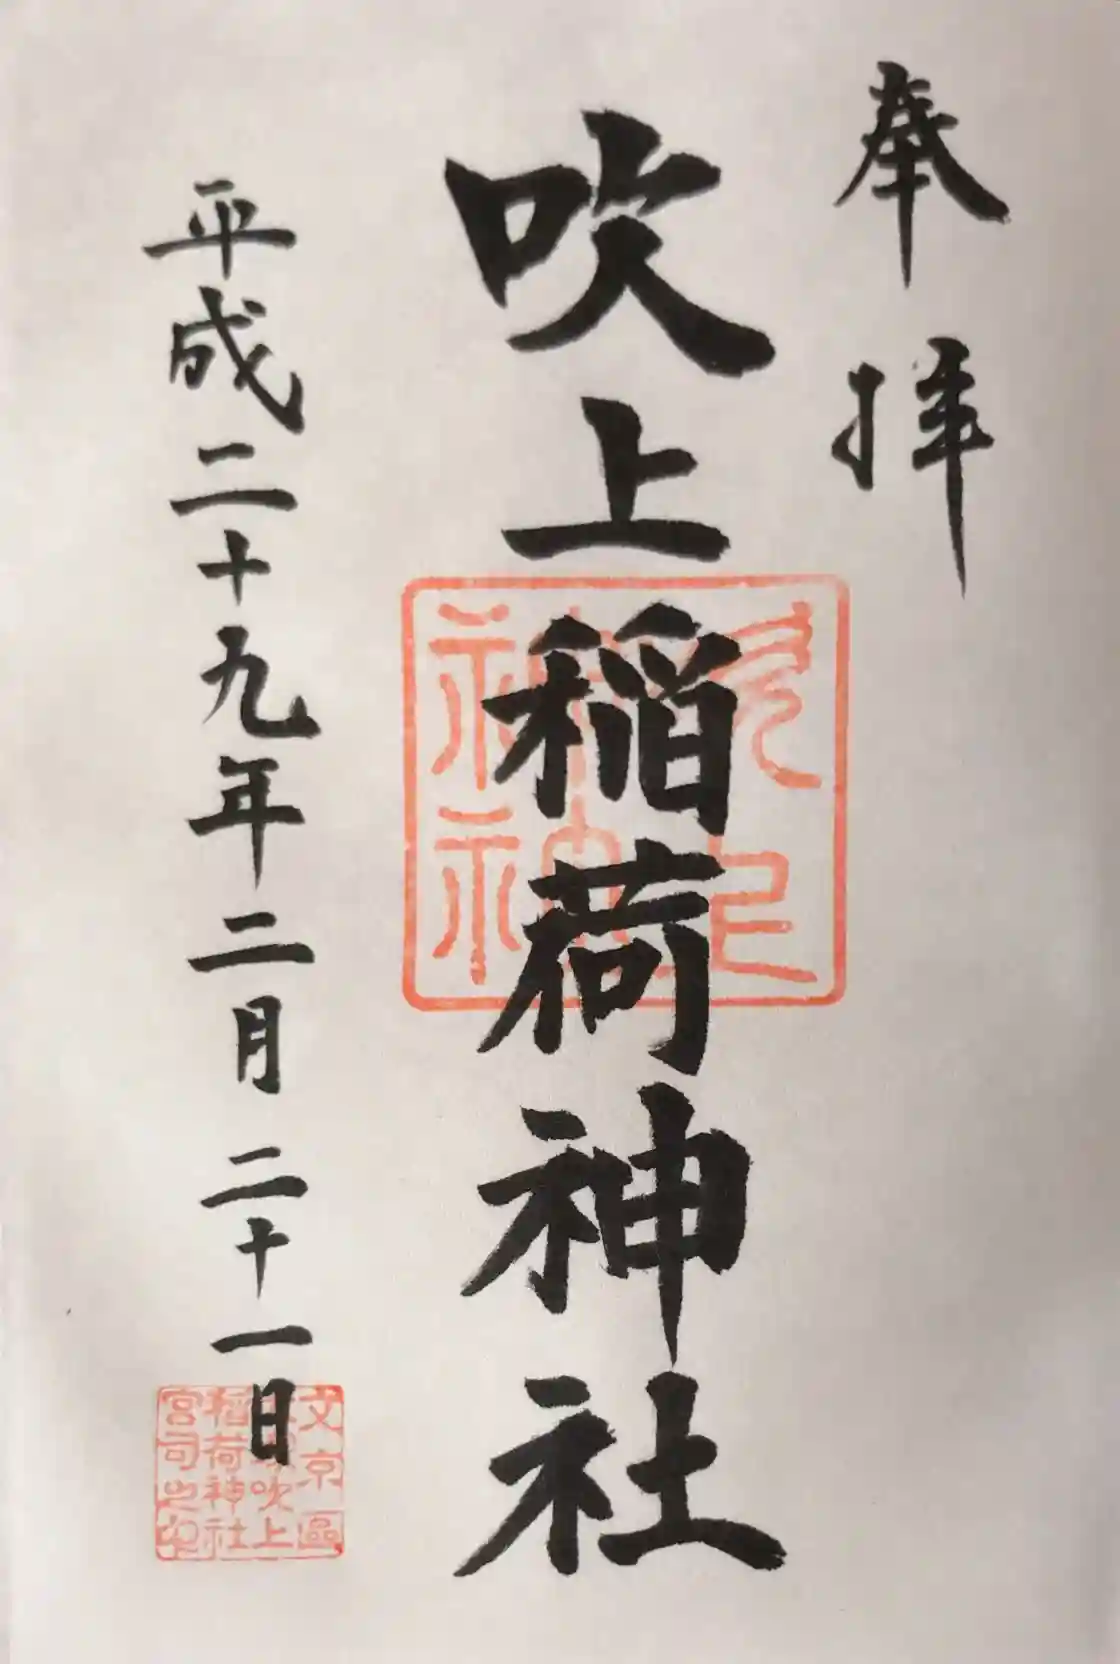 奉拝
吹上稲荷神社
平成二十九年二月二十一日
文京區
吹上
稲荷神社
宮司之印